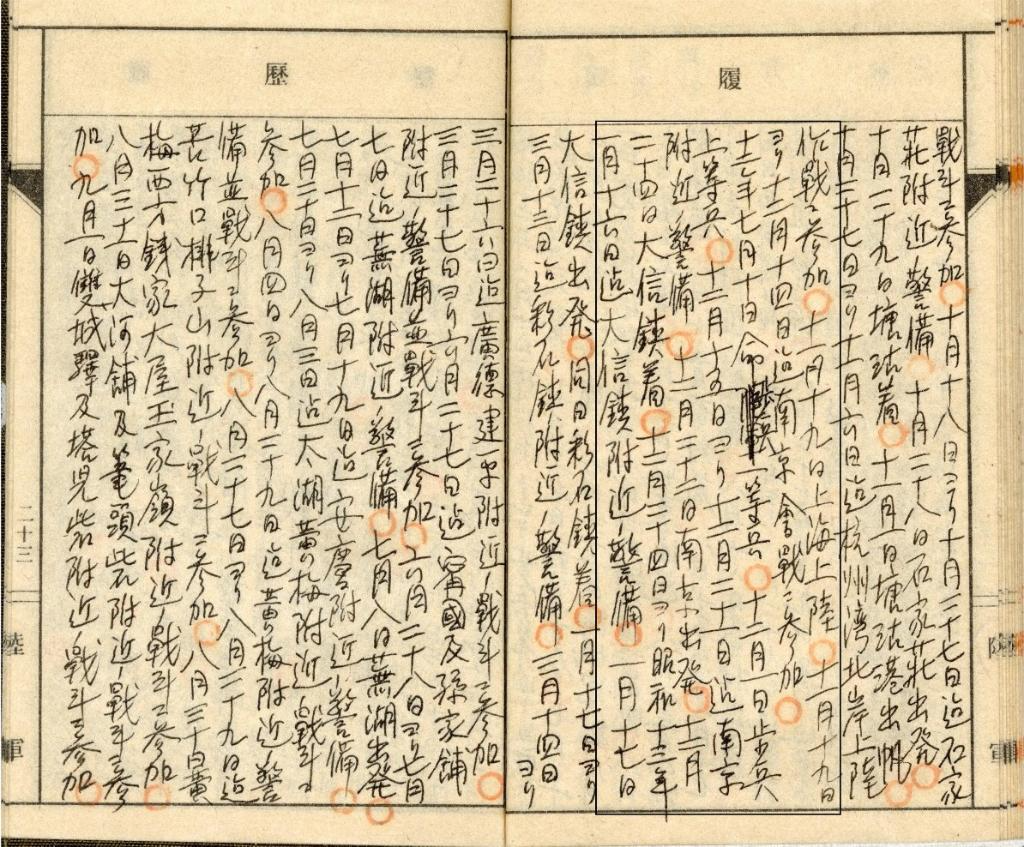 履
戰斗ニ参加 十月十八日ヨリ十月二十七日迠石家
莊附近ノ警備 十月二十八日石家莊出発
十月二十九日塘沽着 十一月一日塘沽港出帆
十月二十七日ヨリ十一月六日迠杭州湾北岸上陸
作戰ニ参加 十一月十九日上海上陸 十一月十九日
ヨリ十二月十四日迠南京會戰ニ参加
十二年七月十日命 一等兵 十二月一日歩兵
上等兵 十二月十五日ヨリ十二月二十一日迠南京
附近ノ警備 十二月二十二日南京出発 十二月
二十四日大信鎮着 十二月二十四日ヨリ昭和十三年
一月十六日迠大信鎮附近ノ警備 一月十七日
大信鎮出発 同日彩石鎮着 一月十七日ヨリ
三月十三日迠彩石鎮附近ノ警備 三月十四日ヨリ
歷
三月二十六日迠廣德建平附近ノ戰斗ニ参加
三月二十七日ヨリ六月二十七日迠甯國及孫家舖
附近ノ警備並戰斗ニ参加 六月二十八日ヨリ七月
七日迠蕪湖附近ノ警備 七月八日蕪湖出発
七月十二日ヨリ七月十九日迠安慶附近ノ警備
七月二十日ヨリ八月三日迠太湖黄梅附近ノ戰斗ニ
参加 八月四日ヨリ八月二十九日迠黄梅附近ノ警
備並戰斗ニ参加 八月二十七日ヨリ八月二十九日迠
苦竹口排子山附近ノ戰斗ニ参加 八月三十日黄
梅西方錢家大屋王家嶺附近ノ戰斗ニ参加
八月三十一日大河舖及筆頭砦附近ノ戰斗ニ参
加 九月一日雙城驛及塔児砦附近ノ戰斗ニ参加
二十三
陸
軍